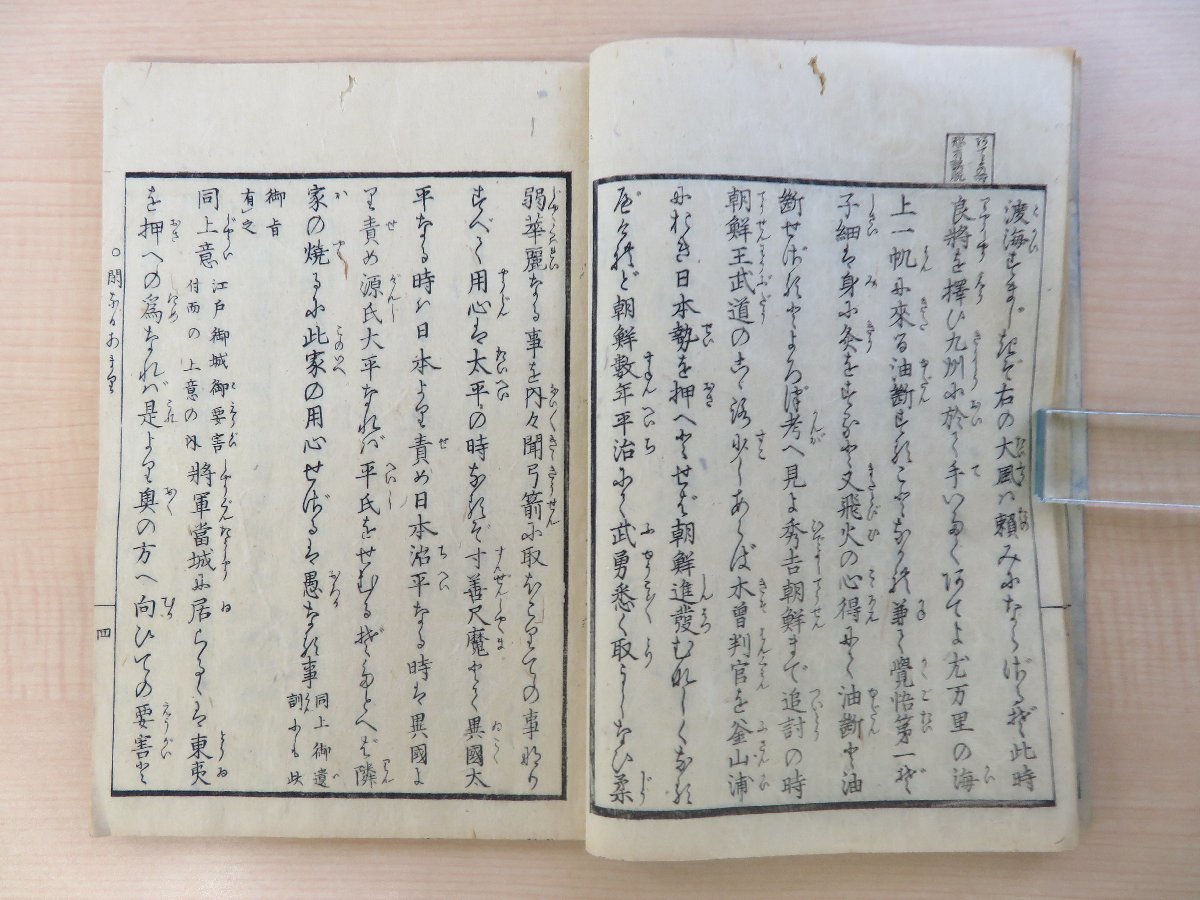 渡海すまじきぞ右の大風は頼みにならざるぞ此時
良將を擇び九州に於て手いたくあてよ尤万里の海
上一帆に來る油斷することなかれ兼て覺悟第一ぞ
子細は身に灸をすゑよ又飛火の心得にて油斷と油
斷せざるとよろづ考へ見よ秀吉朝鮮まで追討の時
朝鮮王武道のこゝろ少しあらば木曽判官を釜山浦
におき日本勢を押へとせば朝鮮進發むなしくなる
べけれど朝鮮數年平治にて武勇悉く取うしなひ柔
弱華麗なる事を内々聞弓箭に取かこりての事なり
すべて用心は太平の時なるぞ寸善尺魔とて異國太
平なる時は日本より責め日本治平なる時は異國よ
り責め源氏大平なれば平氏をせむるぞたとへば隣
家の焼るに此家の用心せざるは愚なる事 同上御遺訓にも此
御旨有之
同上意 江戸御城御要害付而の上意の内 將軍當城に居らるゝは東夷
を押への爲なれば是より奥の方へ向ひての要害と
四